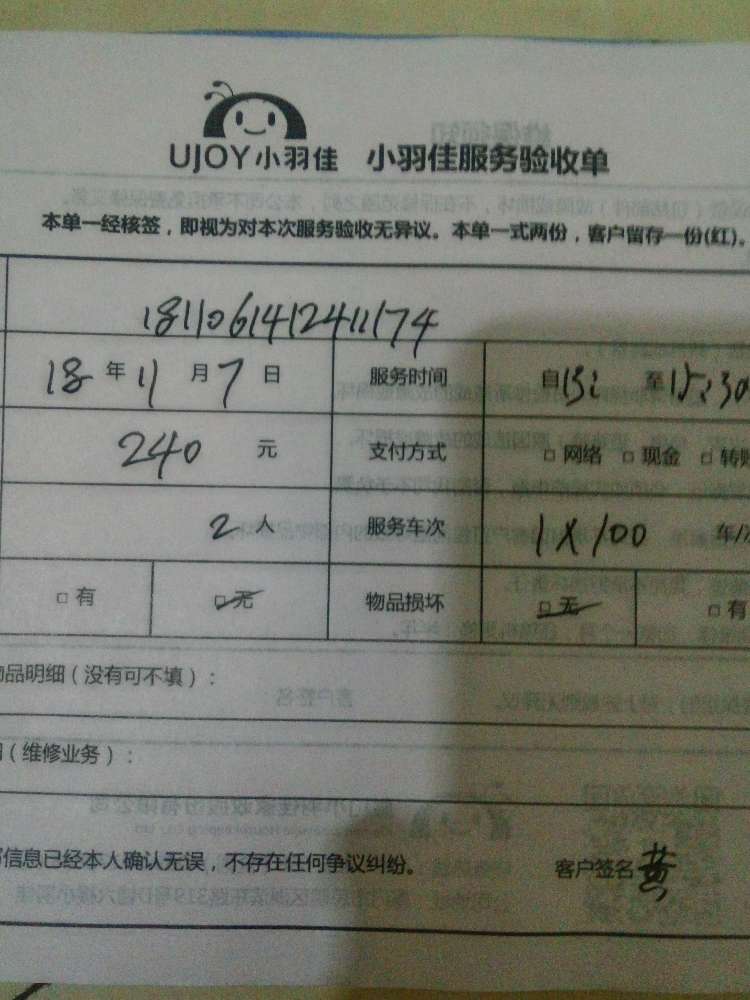 UJOY小羽佳 小羽佳服务验收单
本单一经核签，即视为对本次服务验收无异议。本单一式两份，客户留存一份(红)。
181106141241174
18 年 11 月 7 日 服务时间 自 至 15:30
240 元 支付方式 □ 网络 □ 现金 □ 转账
2 人 服务车次 1X100 车/次
□ 有 □ 无 物品损坏 □ 无 □ 有
品明细（没有可不填）：
（维修业务）：
信息已经本人确认无误，不存在任何争议纠纷。 客户签名 黄